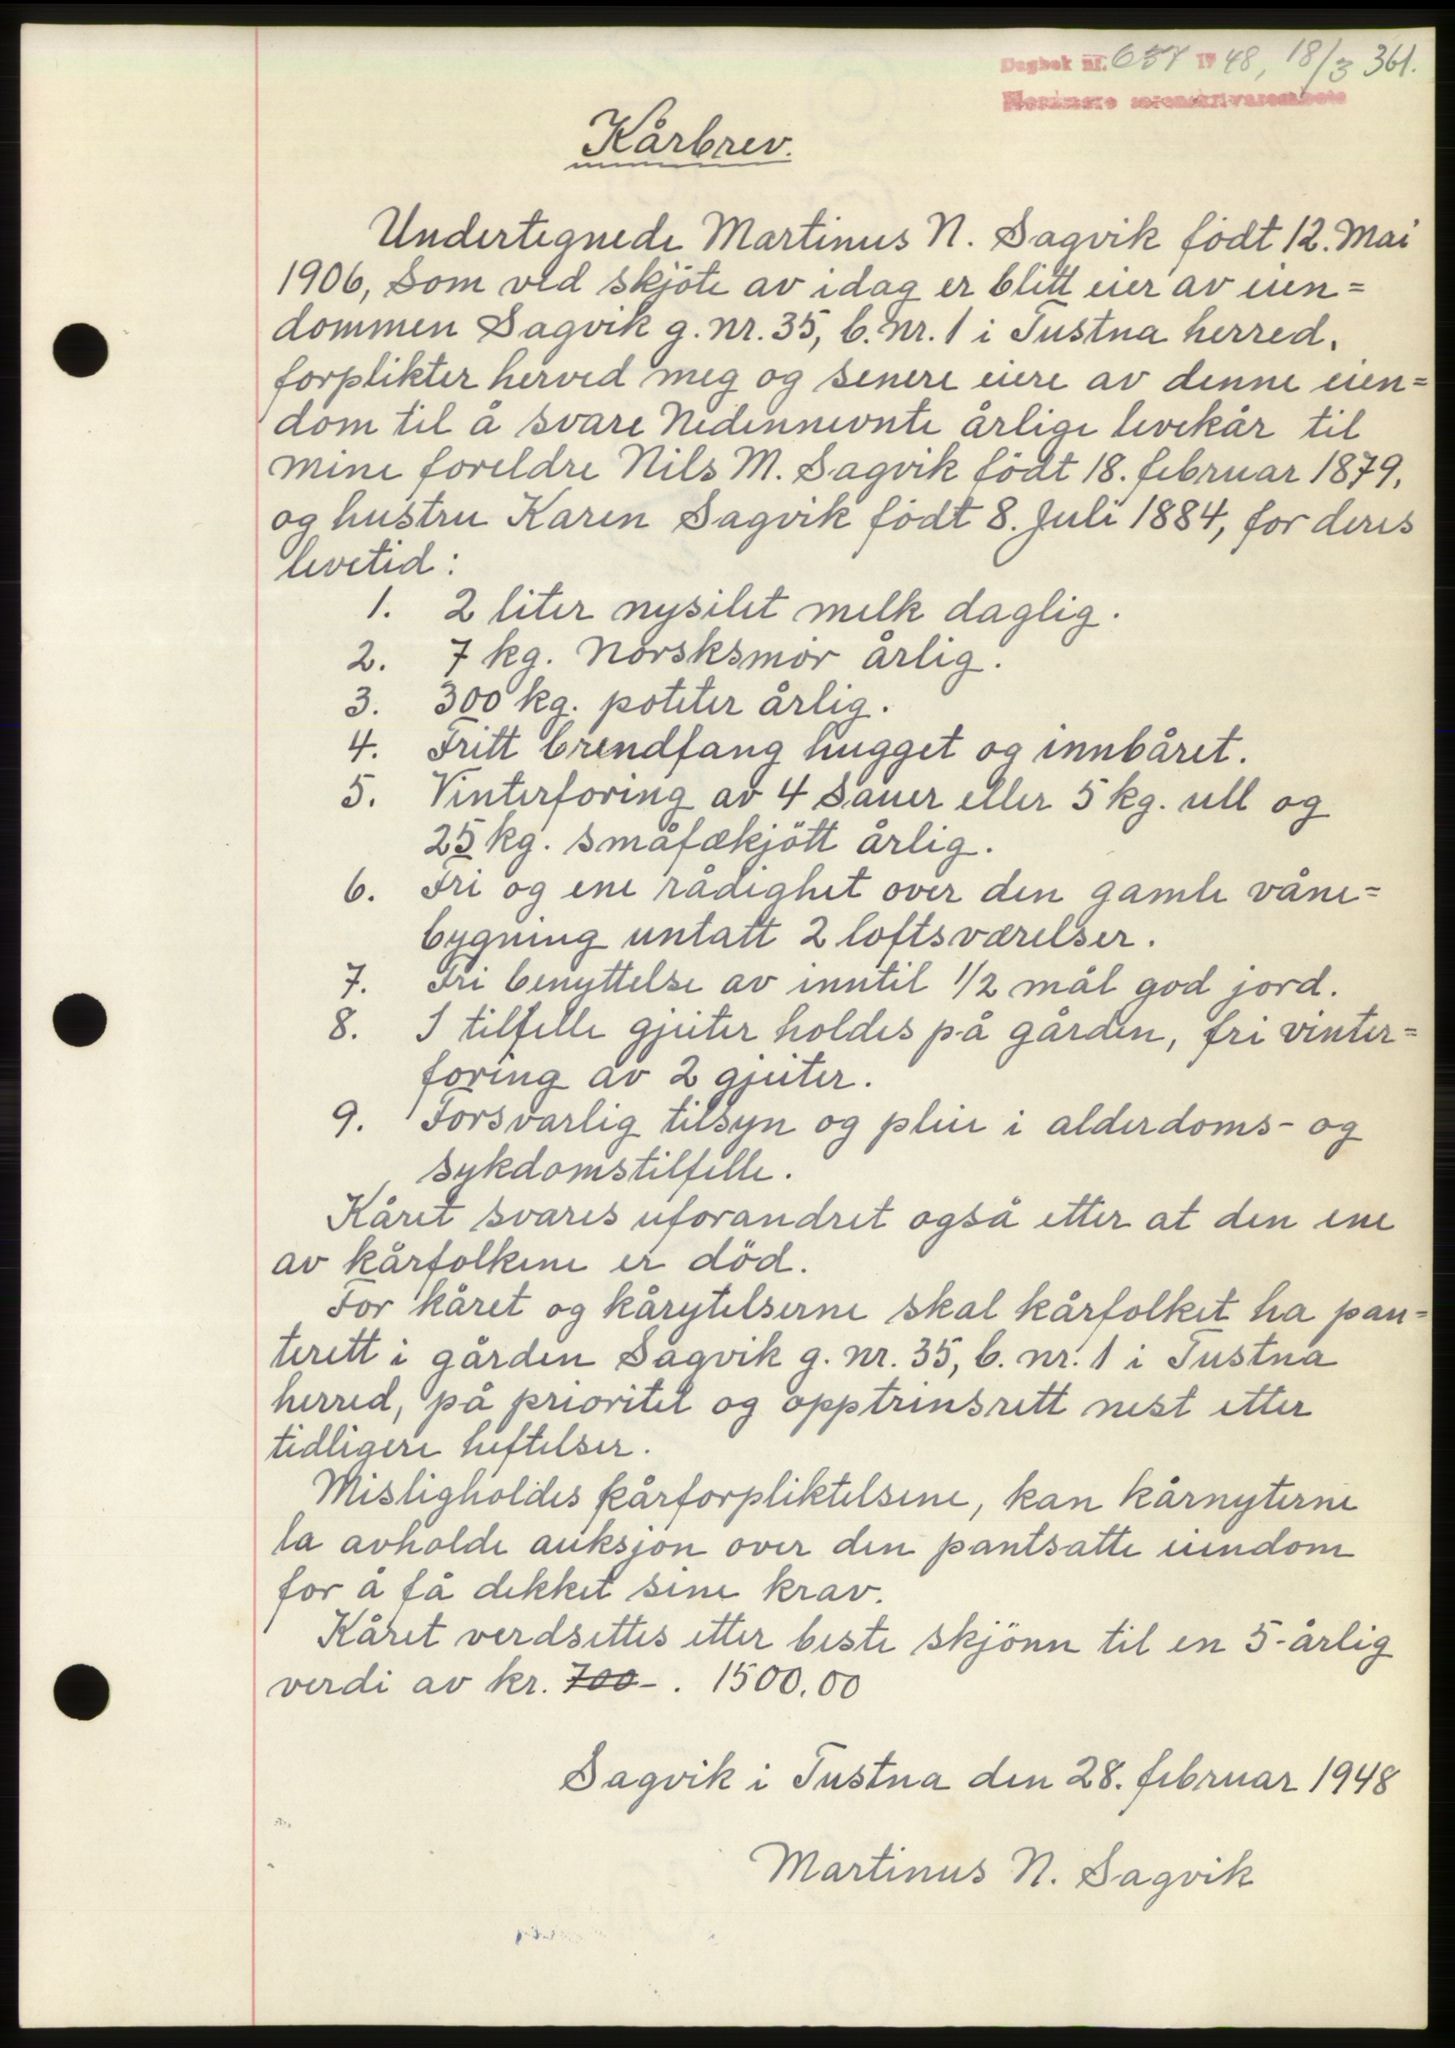 Dagbok nr. 657 19 48, 18/3 361.
Nordmøre sorenskrivarembete
Kårbrev.
Undertegnede Martinus N. Sagvik födt 12. Mai
1906, som ved skjöte av idag er blitt eier av eien=
dommen Sagvik g. nr. 35, b. nr. 1 i Tustna herred,
forplikter herved meg og senere eiere av denne eien=
dom til å svare nedennevnte årlige levekår til
mine foreldre Nils M. Sagvik födt 18. februar 1879,
og hustru Karen Sagvik födt 8. Juli 1884, for deres
levetid:
1. 2 liter nysilet melk daglig.
2. 7 kg. Norsksmör årlig.
3. 300 kg. poteter årlig.
4. Fritt brendfang hugget og innbåret.
5. Vinterforing av 4 sauer eller 5 kg. ull og
25 kg. småfækjött årlig.
6. Fri og ene rådighet over den gamle våne=
bygning untatt 2 loftsværelser.
7. Fri benyttelse av inntil 1/2 mål god jord.
8. I tilfelle gjeiter holdes på gården, fri vinter=
foring av 2 gjeiter.
9. Forsvarlig tilsyn og pleie i alderdoms- og
sykdomstilfelle.
Kåret svares uforandret også etter at den ene
av kårfolkene er död.
For kåret og kårytelserne skal kårfolket ha pan=
terett i gården Sagvik g. nr. 35, b. nr. 1 i Tustna
herred, på prioritet og opptrinsrett nest etter
tidligere heftelser.
Misligholdes kårforpliktelsene, kan kårnyterne
la avholde auksjon over den pantsatte eiendom
for å få dekket sine krav.
Kåret verdsettes etter beste skjönn til en 5-årlig
verdi av kr. 700-. 1500.00
Sagvik i Tustna den 28. februar 1948
Martinus N. Sagvik